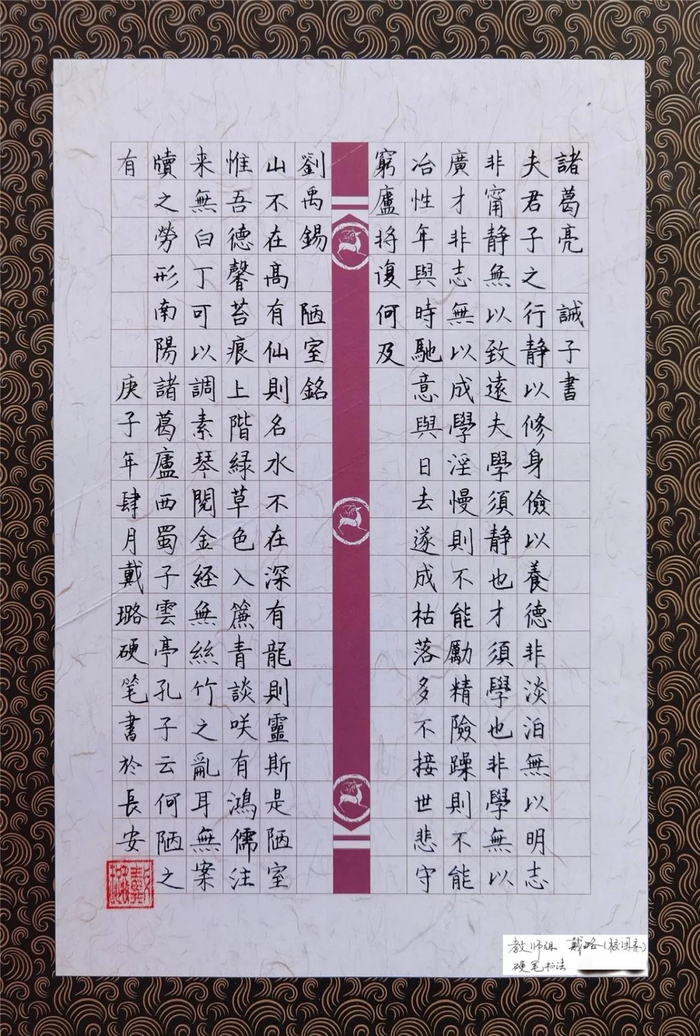 諸葛亮 誡子書
夫君子之行静以修身儉以養德非淡泊無以明志
非甯静無以致遠夫學須静也才須學也非學無以
廣才非志無以成學淫慢則不能勵精險躁則不能
冶性年與時馳意與日去遂成枯落多不接世悲守
窮廬将復何及
劉禹錫 陋室銘
山不在高有仙則名水不在深有龍則靈斯是陋室
惟吾德馨苔痕上階緑草色入簾青談咲有鴻儒注
来無白丁可以調素琴閲金経無絲竹之亂耳無案
牘之勞形南陽諸葛廬西蜀子雲亭孔子云何陋之
有 庚子年肆月戴璐硬笔書於長安
教师组 戴璐(校团委)
硬笔书法